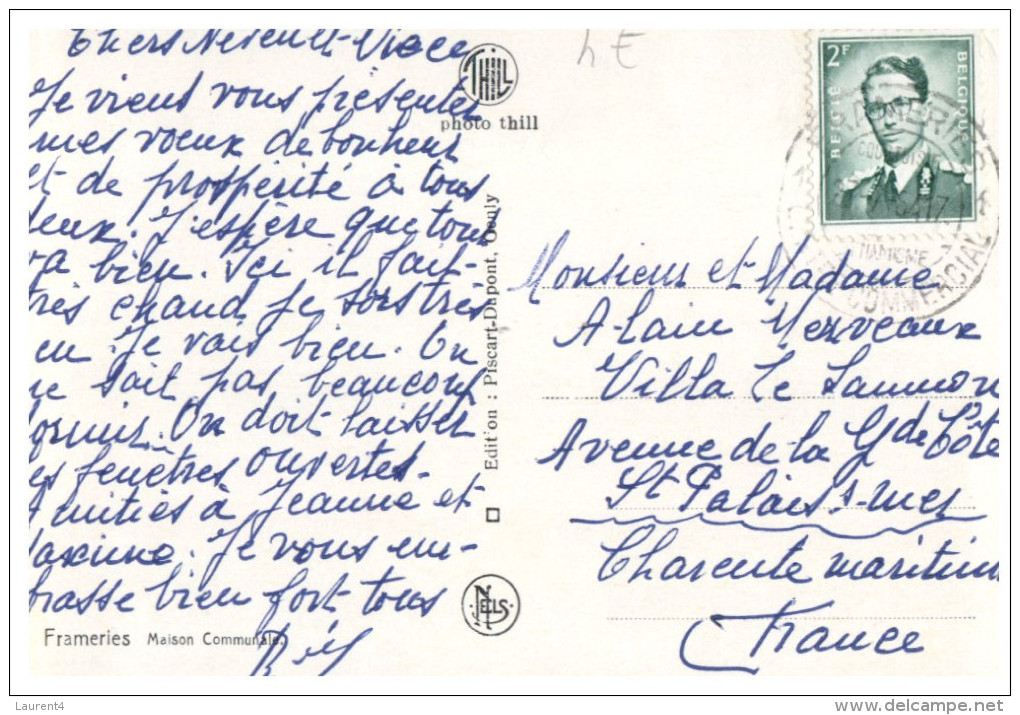 Chers Neveu et Nièce
Je viens vous présenter
mes vœux de bonheur
et de prospérité à tous
deux. J'espère que tout
va bien. Ici il fait
très chaud Je sors très
peu. Je vais bien. On
ne sait pas beaucoup
dormir. On doit laisser
les fenêtres ouvertes.
Amitiés à Jeanne et
Maxime. Je vous em-
brasse bien fort tous
Frameries Maison Communale.
THILL
photo thill
Edition : Piscart-Dupont, Quuly
NELS
4 E
2F
BELGIE BELGIQUE
FRAMERIES
COMMERCIAL
Monsieur et Madame
Alain Merveaux
Villa Le
Avenue de la Gde Côte
St Palais s-mer
Charente maritim
France
Laurent4
delcampe.net